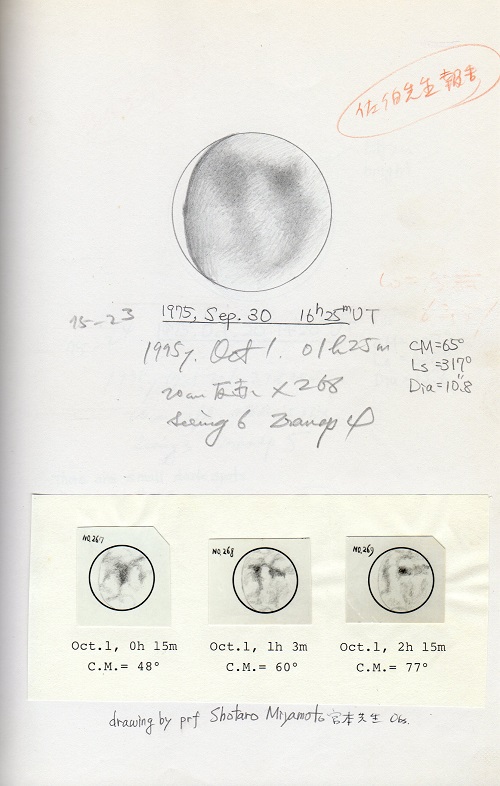 佐伯先生報告
75-23
1975, Sep. 30 16h25mUT
1975y. Oct 1. 01h25m
CM=65°
Ls=317°
Dia=10".8
20cm 反赤 ×268
Seeing 6 Transp 4
NO.267
NO.268
NO.269
Oct.1, 0h 15m
Oct.1, 1h 3m
Oct.1, 2h 15m
C.M.= 48°
C.M.= 60°
C.M.= 77°
drawing by prf Shotaro Miyamoto 宮本先生 Obs.